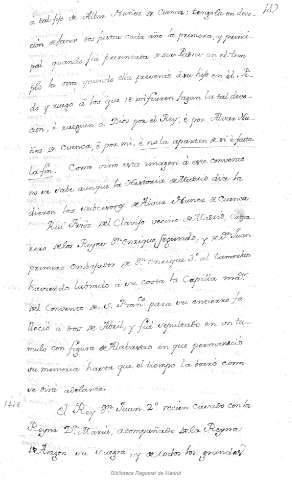 117
a tal fijo de Albar Muñoz de Cuenca: tengola en devo-
cion de facer dos fiestas cada año la primera, y princi-
pal quando fue presentada a su Padre en el tem-
plo la otra quando ella presentó a su hijo en él. Pi-
do y ruego a los que de mi finiren fagan la tal devo-
cion, è rueguen a Dios por el Rey, è por Alvar Mu-
ñoz de Cuenca, è por mi, è no la aparten de si è fasta
la fin. Como vino esta imagen a este convento
no se sabe aunque la Historia de Madrid dice la
dieron los subcesores de Alvar Muñoz de Cuenca
Rui Gonz. de Clavijo vecino de Madrid, Cama-
rero de los Reyes Dn. Enrique segundo, y Dn. Juan
primero embajador de Dn. Enrique 3º. al Tamorlan
haviendo labrado á su costa la Capilla mar.
del Convento de S. Franco. para su entierro fa-
lleció a dos de Abril, y fué sepultado en un tu-
mulo con figura de Alabastro en que permaneció
su memoria hasta que el tiempo la borró como
se dirá adelante.
El Rey Dn. Juan 2º recien casado con la
Reyna Da. Maria, acompañado de la Reyna
de Aragon su suegra, y de todos los grandes
Biblioteca Regional de Madrid